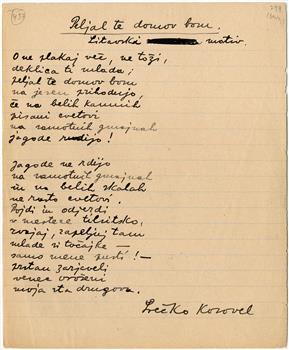 Peljal te domov bom.
Litavska motiv.
O ne plakaj več, ne toži,
deklica ti mlada;
peljal te domov bom
na jesen prihodnjo,
če na belih kamnih
pisani cvetovi
na samotnih gmajnah
jagode rudijo!
Jagode ne rdijo
na samotnih gmajnah
in na belih skalah
ne rasto cvetovi.
Pojdi in odjezdi
v mestece tilsitsko,
zvajaj, zapelji tam
mlade si točajke —
samo mene pusti! —
prstan zarjaveli
venec
moja sta drugova.
Srečko Kosovel